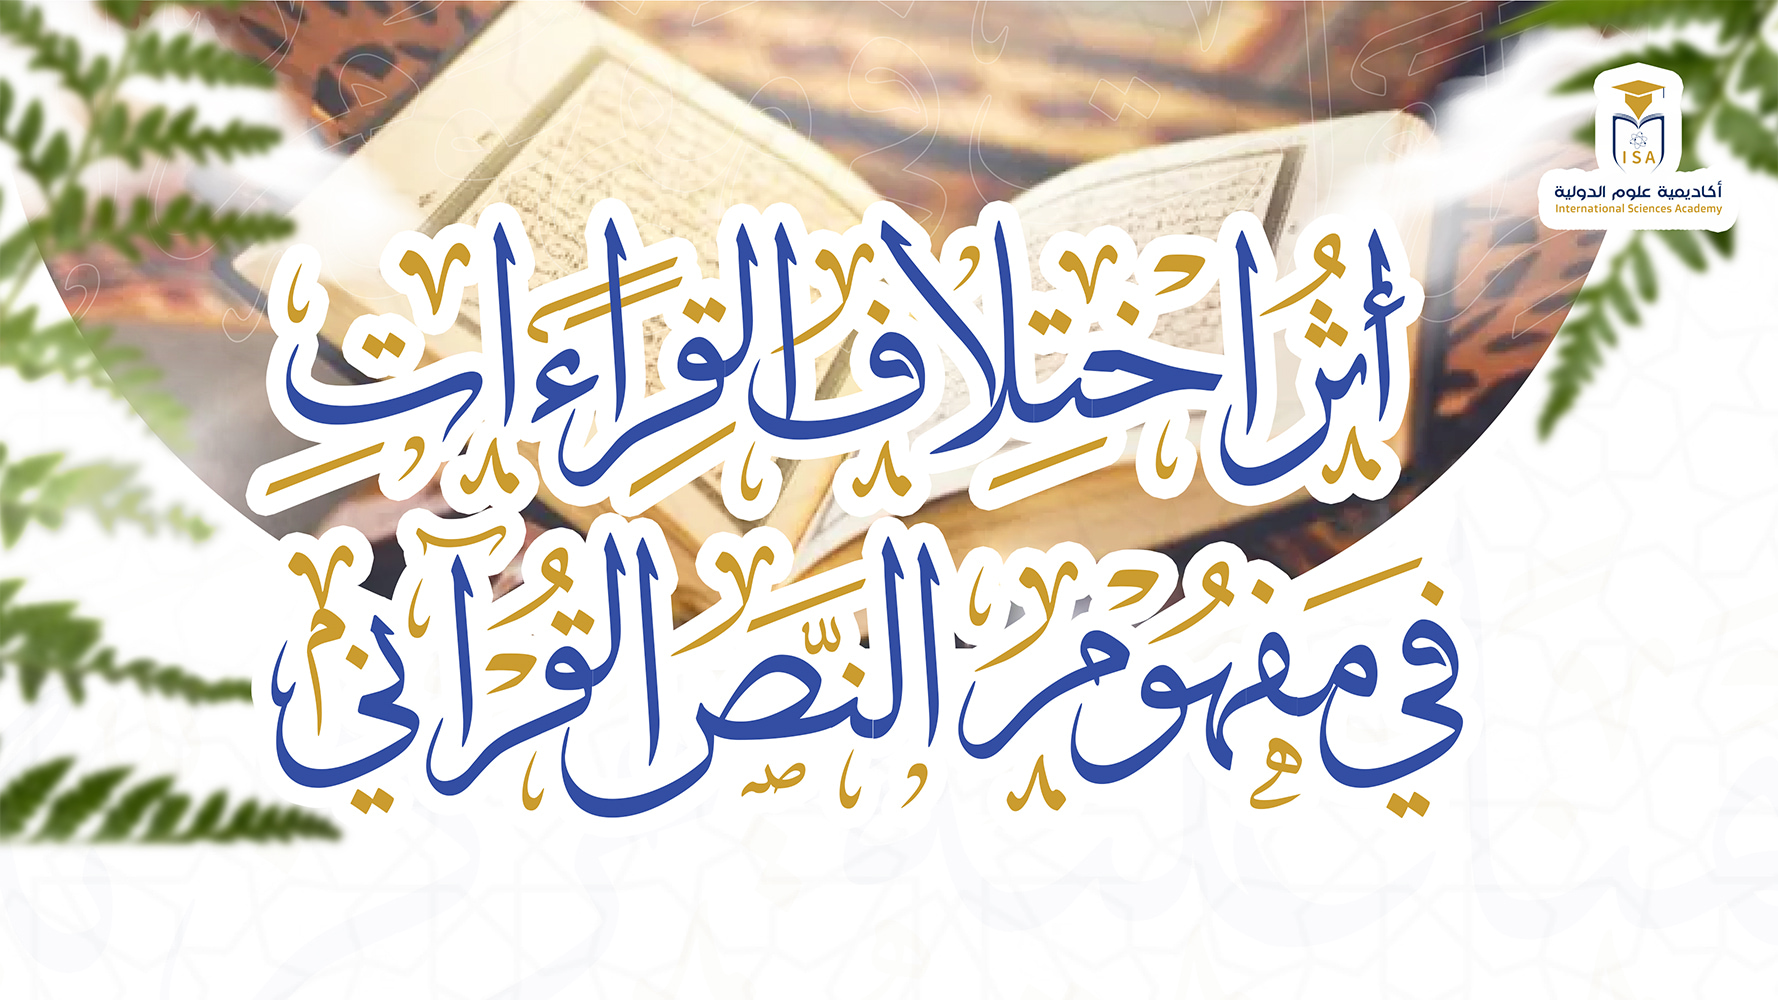 أكاديمية علوم الدولية
ISA
International Sciences Academy
أثر اختلاف القراءات
في مفهوم النص القرآني